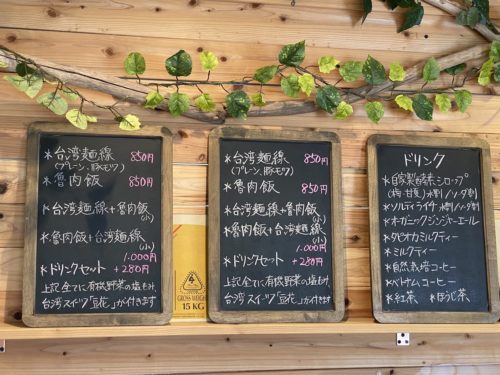 *台湾麺線 850円
(プレーン、豚モツ)
*魯肉飯 850円
*台湾麺線+魯肉飯
(小)
*魯肉飯+台湾麺線
(小)
1.000円
*ドリンクセット
+280円
上記全てに有機野菜の塩もみ、
台湾スイーツ「豆花」が付きます
GROSS WEIGHT
15 KG
*台湾麺線 850円
(プレーン、豚モツ)
*魯肉飯 850円
*台湾麺線+魯肉飯
(小)
*魯肉飯+台湾麺線
(小)
1.000円
*ドリンクセット
+280円
上記全てに有機野菜の塩もみ、
台湾スイーツ「豆花」が付きます
ドリンク
*自家製酵素シロップ
(梅・甘夏)水割/ソーダ割
*ソルティライチ 水割/ソーダ割
*オーガニックジンジャーエール
*タピオカミルクティー
*ミルクティー
*自然栽培コーヒー
*ベトナムコーヒー
*紅茶 *ほうじ茶